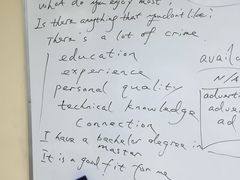 what do you enjoy most?
Is there anything that you don't like?
There's a lot of crime.
education
experience
personal quality
technical knowledge
Connection
I have a bachelor degree in
master
It is a good fit for me
availa
N/A
adverti
adve
ad